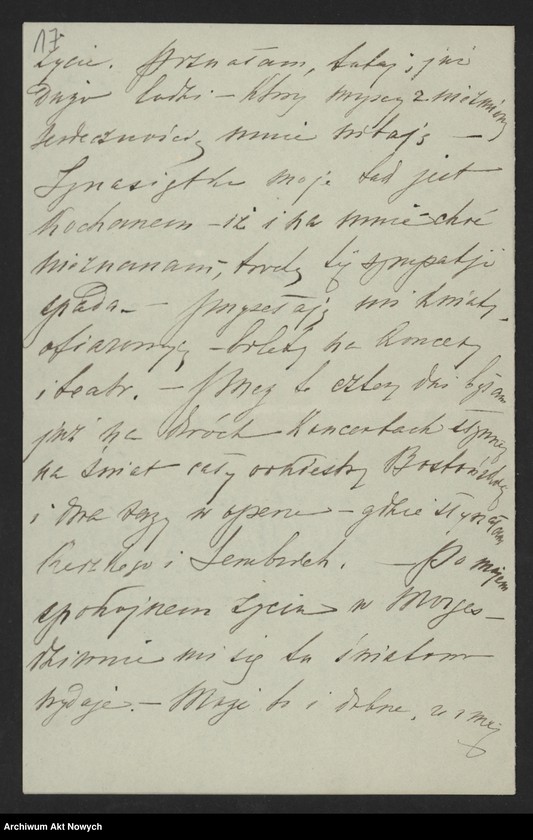 17
życie. Poznałam, tutaj, już
dużo ludzi – którzy wszyscy z niezmierną
serdecznością mnie witają –
Synasiątko moje tak jest
kochanem – iż i na mnie choć
nieznanam, trochę tej sympatji
spada. – Przysełają mi kwiaty,
ofiarowują – bilety na koncerty
i teatr. – Przez te cztery dni byłam
już na dwóch koncertach słynnej
na świat cały orkiestry Bostońskiej
i dwa razy w operze – gdzie słyszałam
Reszkego i Sembrich. – Po mojem
spokojnem życiu w Morges –
dziwnie mi się tu światowo
wydaje. – Może to i dobre, że i mej
Archiwum Akt Nowych